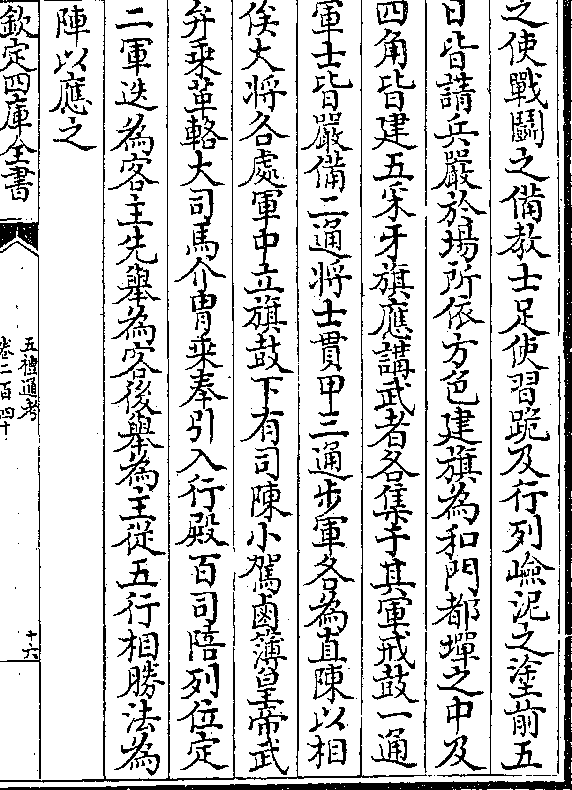 之使戰鬭之備教士足使習跪及行列嶮泥之塗前五
日皆請兵嚴於場所依方色建旗為和門都墠之中及
四角皆建五采牙旗應講武者各集于其軍戒鼓一通
軍士皆嚴備二通將士貫甲三通步軍各為直陳以相
俟大將各處軍中立旗鼓下有司陳小駕鹵簿皇帝武
弁乗革輅大司馬介胄乗奉引入行殿百司陪列位定
二軍迭為客主先舉為客後舉為主從五行相勝法為
陣以應之
欽定四庫全書
五禮通考
卷二百四十
十六